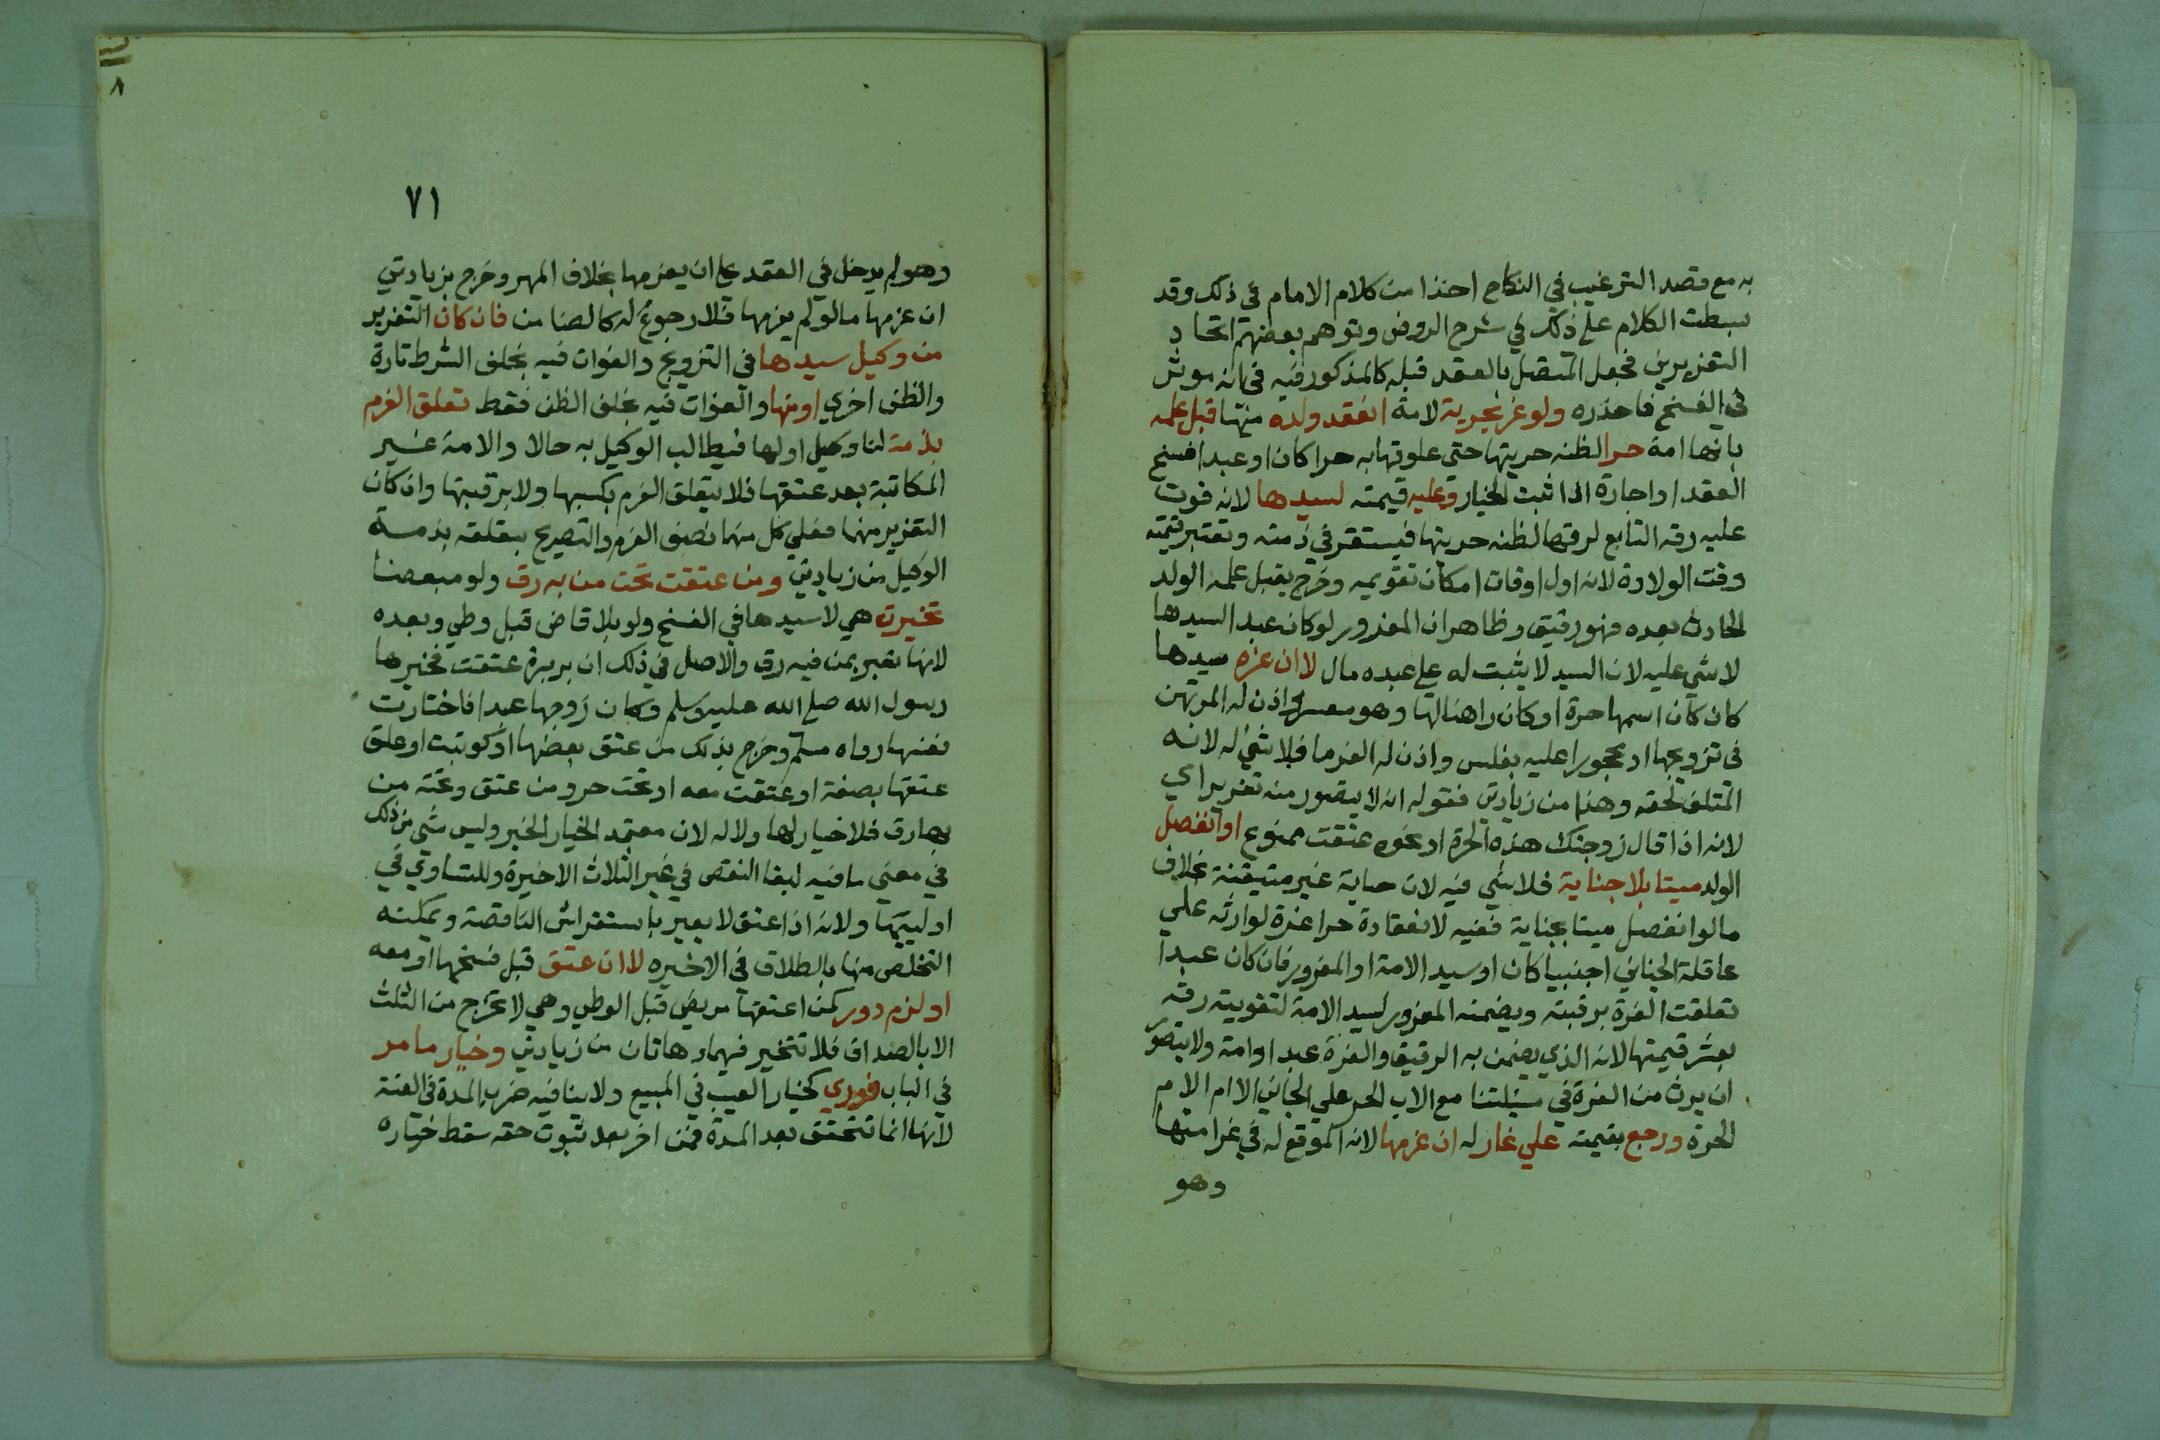 به مع قصد الترغيب في النكاح اخذا من كلام الامام في ذلك وقد
بسطت الكلام على ذلك في شرح الروض وتوهم بعضهم اتحاد
التغريرين فجعل المتصل بالعقد قبله كالمذكور فيه في انه موثر
في الفسخ فاحذره ولو غر بحرية لامة انعقد ولده منها قبل علمه
بانها امة حرا لظنه حريتها حتى علوقها به حرا كان او عبدا فسخ
العقد او اجازه اذا ثبت الخيار وعليه قيمته لسيدها لانه فوت
عليه رقه التابع لرقها لظنه حريتها فيستقر في ذمته وتعتبر قيمته
وقت الولادة لانه اول اوقات امكان تقويمه وخرج بقبل علمه الولد
الحادث بعده فهو رقيق وظاهر ان المغرور لو كان عبد السيدها
لا شي عليه لان السيد لا يثبت له على عبده مال لا ان غره سيدها
كان كان اسمها حرة او كان راهنا لها وهو معسر واذن له المرتهن
في تزويجها او محجورا عليه بفلس واذن له الغرما فلا شي له لانه
المتلف لحقه وهذا من زيادتي فقوله انه لا يتصور منه تغرير اي
لانه اذا قال زوجتك هذه الحرة او نحوه عتقت ممنوع او انفصل
الولد ميتا بلا جناية فلا شي فيه لان حياته غير متيقنة بخلاف
ما لو انفصل ميتا بجناية ففيه لانعقاده حرا غرة لوارثه علي
عاقلة الجاني اجنبيا كان او سيد الامة او المغرور فان كان عبدا
تعلقت الغرة برقبته ويضمنه المغرور لسيد الامة لتفويته رقه
بعشر قيمتها لانه الذي يضمن به الرقيق والغرة عبد او امة ولا يتصور
ان يرث من الغرة في مسئلتنا مع الاب الحر علي الجاني الا ام الام
الحرة ورجع بقيمته علي غار له ان غرمها لانه الموقع له في غرامتها
وهو
٧١
وهو لم يدخل في العقد علي ان يغرمها بخلاف المهر وخرج بزيادتي
ان غرمها ما لو لم يغرمها فلا رجوع له كالضامن فان كان التغرير
من وكيل سيدها في التزويج والفوات فيه بخلف الشرط تارة
والظن اخري او منها والفوات فيه بخلف الظن فقط تعلق الغرم
بذمة لنا وكيل او لها فيطالب الوكيل به حالا والامة غير
المكاتبة بعد عتقها فلا يتعلق الغرم بكسبها ولا برقبتها وان كان
التغرير منهما فعلي كل منهما نصف الغرم والتصريح بتعلقه بذمة
الوكيل من زيادتي ومن عتقت تحت من به رق ولو مبعضا
تخيرت هي لا سيدها في الفسخ ولو بلا قاض قبل وطي وبعده
لانها تعير بمن فيه رق والاصل في ذلك ان بريرة عتقت فخيرها
رسول الله صلي الله عليه وسلم وكان زوجها عبدا فاختارت
نفسها رواه مسلم وخرج بذلك من عتق بعضها او كوتبت او علق
عتقها بصفة او عتقت معه او تحت حر ومن عتق وتحته من
بها رق فلا خيار لها ولا له لان معتمد الخيار الخبر وليس شي من ذلك
في معني ما فيه لبقا النقص في غير الثلاث الاخيرة وللتساوي في
اوليتها ولانه اذا عتق لا يعير باستفراش الناقصة ويمكنه
التخلص منها بالطلاق في الاخيرة لا ان عتق قبل فسخها او معه
او لزم دور كمن اعتقها مريض قبل الوطي وهي لا تخرج من الثلث
الا بالصداق فلا تتخير فيهما وهاتان من زيادتي وخيار ما مر
في الباب فوري كخيار العيب في المبيع ولا ينافيه ضرب المدة في العنة
لانها انما تتحقق بعد المدة فمن اخر بعد ثبوت حقه سقط خياره